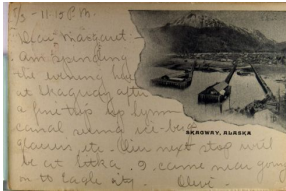 5/3 - 11-15 P.M.
Dear Margaret -
Am spending
the evening here
at Skagway after
a fine trip up Lynn
canal seeing ice-bergs
glaciers, etc. Our next stop will
be at Sitka. I came near going
on to Eagle city. Olive.
SKAGWAY, ALASKA